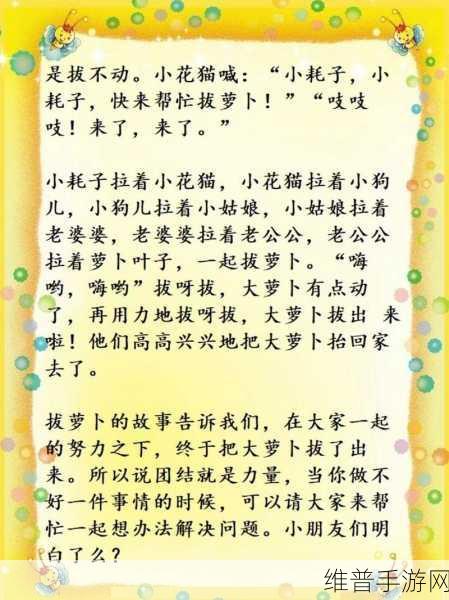 是拔不动。小花猫喊：“小耗子，小
耗子，快来帮忙拔萝卜！”“吱吱
吱！来了，来了。”
小耗子拉着小花猫，小花猫拉着小狗
儿，小狗儿拉着小姑娘，小姑娘拉着
老婆婆，老婆婆拉着老公公，老公公
拉着萝卜叶子，一起拔萝卜。“嗨
哟，嗨哟”拔呀拔，大萝卜有点动
了，再用力地拔呀拔，大萝卜拔出 来
啦！他们高高兴兴地把大萝卜抬回家
去了。
拔萝卜的故事告诉我们，在大家一起
的努力之下，终于把大萝卜拔了出
来。所以说团结就是力量，当你做不
好一件事情的时候，可以请大家来帮
忙一起想办法解决问题。小朋友们明
白了么？
维普手游网